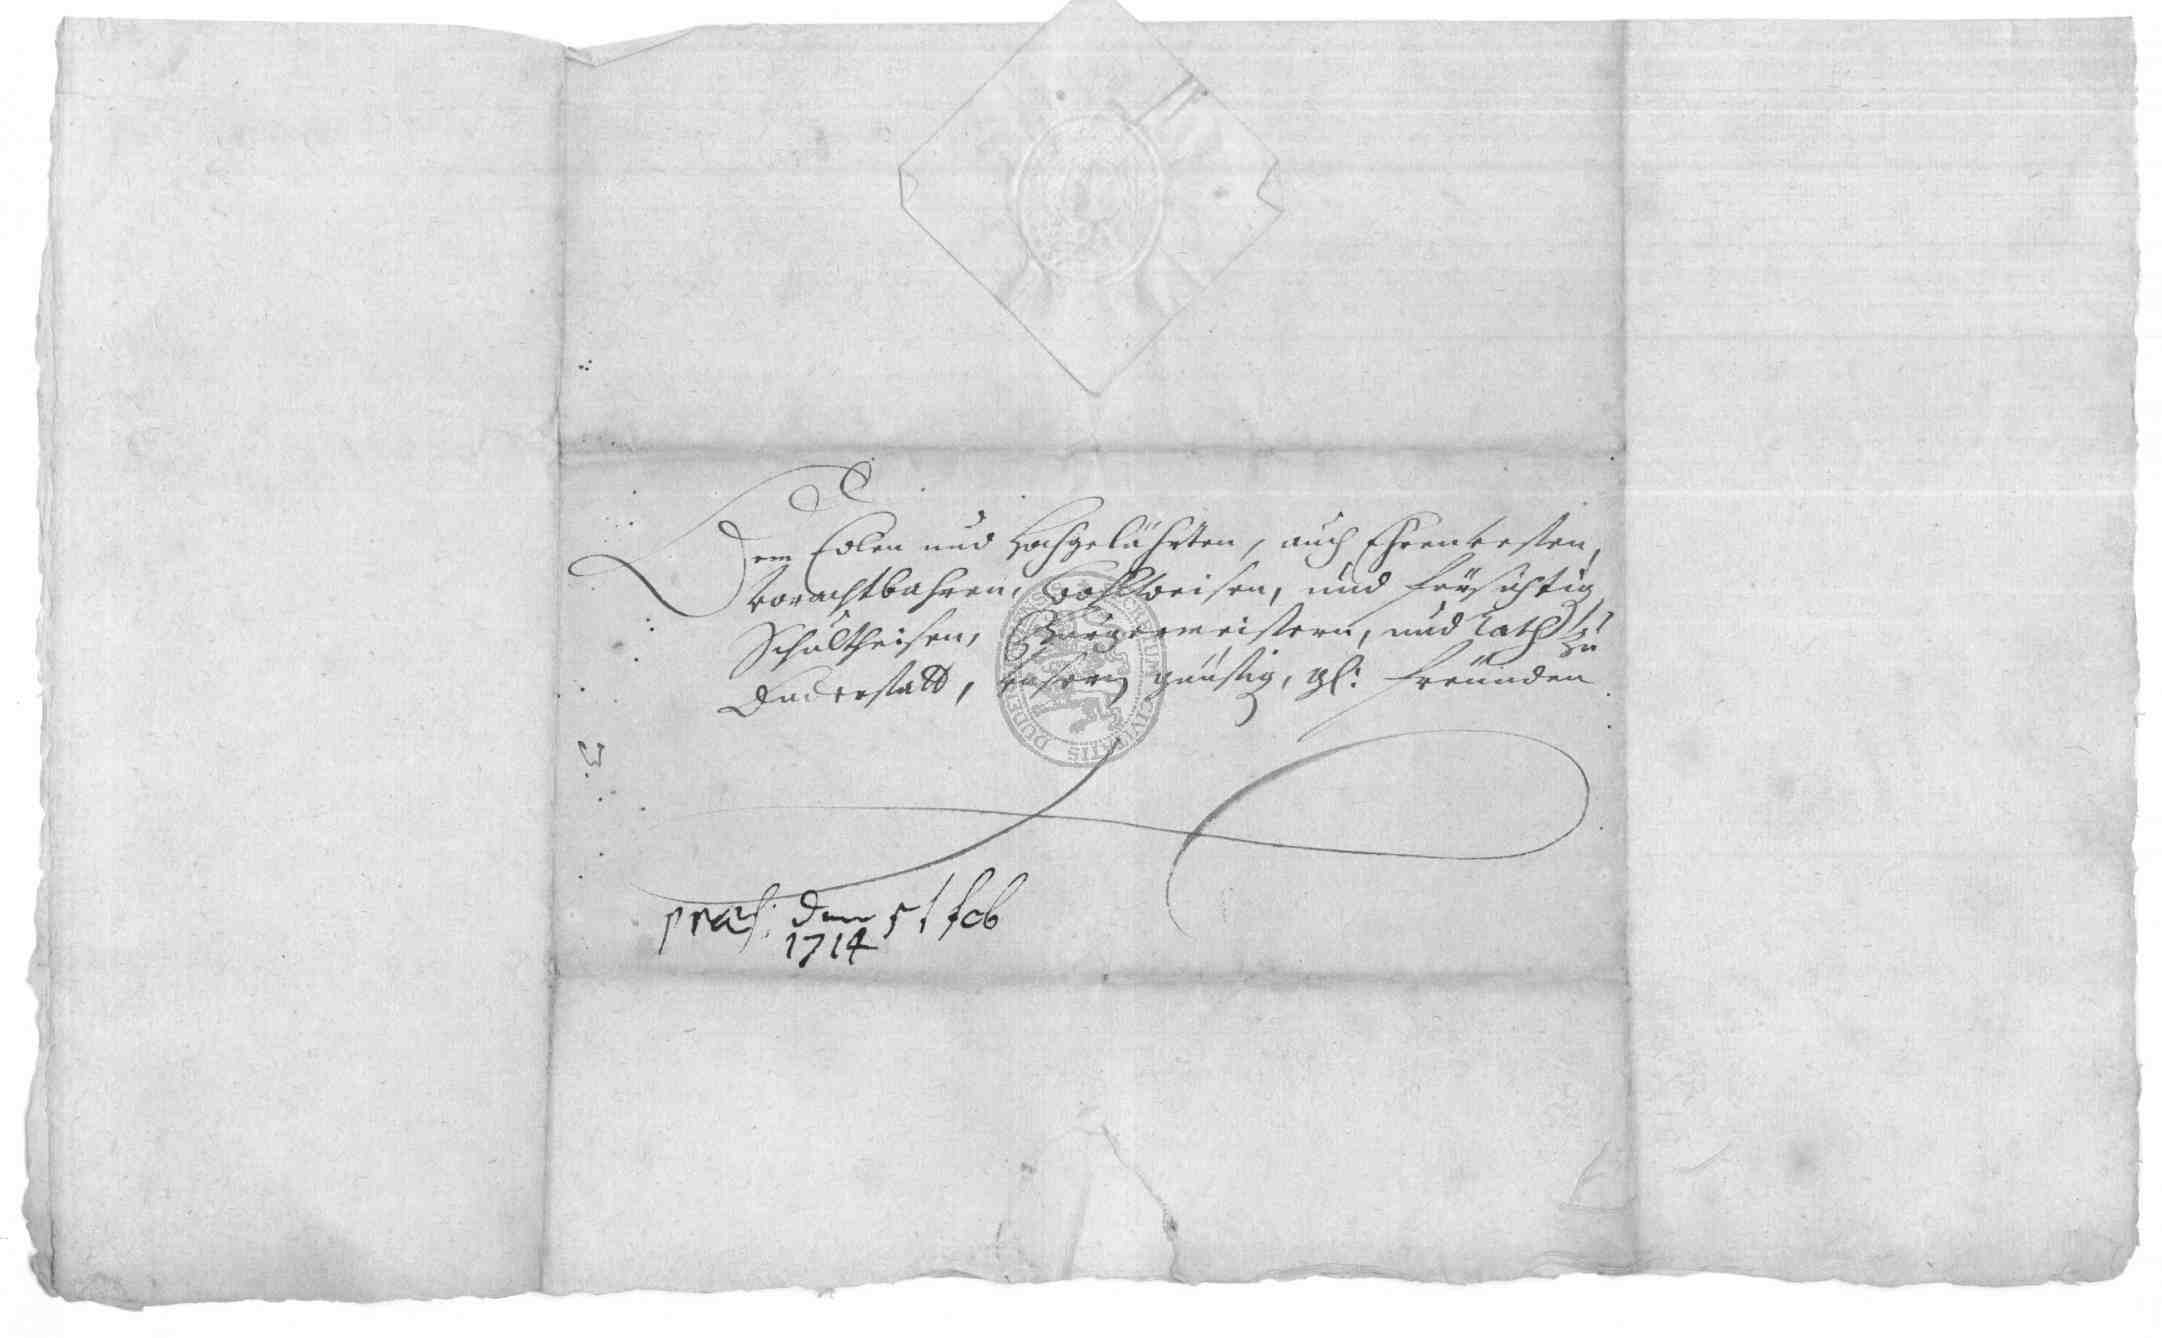 Dem Edlen und Hochgelährten, auch Ehrenvesten,
vorachtbahren, wohlweisen, und fürsichtig
Schultheisen, Burgermeistern, und Rath zu
Duderstatt, unsern günstig, gl: freünden
præs: den 5t feb
1714